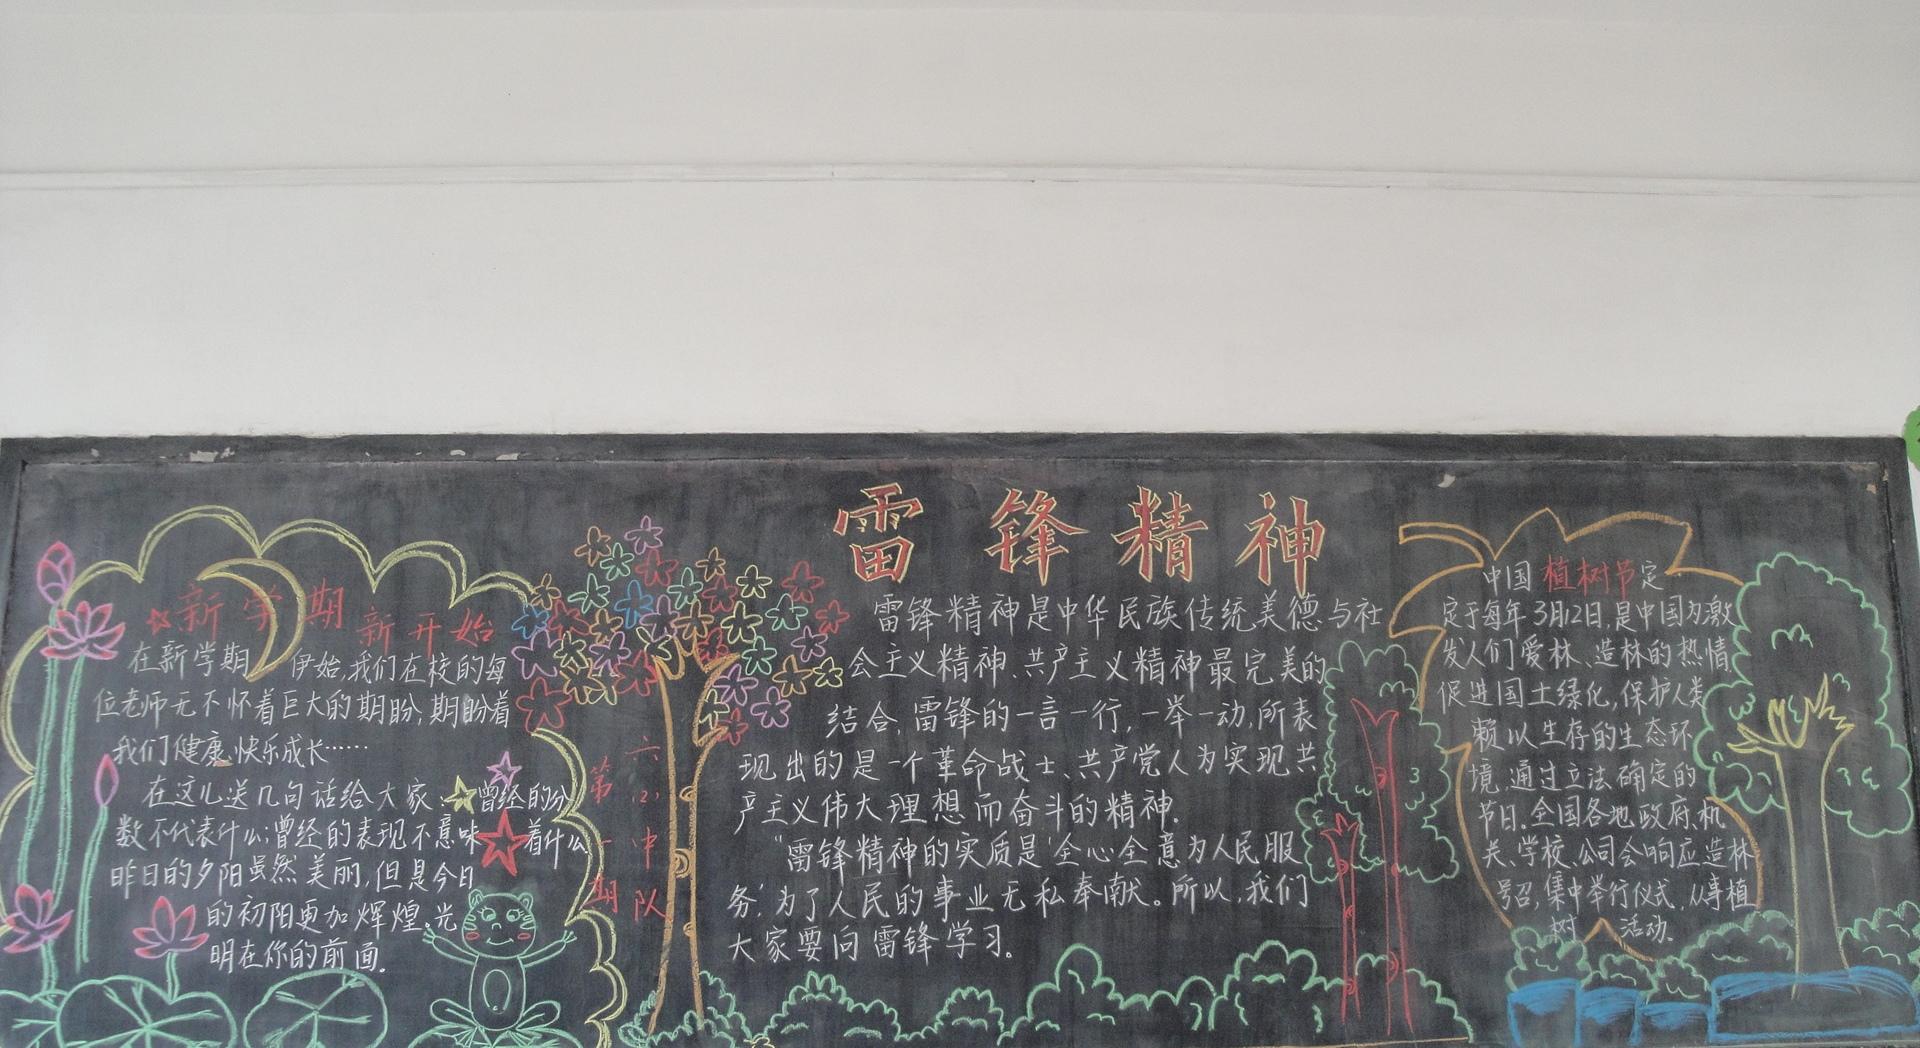 新学期 新开始
在新学期伊始,我们在校的每
位老师无不怀着巨大的期盼,期盼着
我们健康、快乐成长……
在这儿送几句话给大家:曾经的分
数不代表什么;曾经的表现不意味着什么
昨日的夕阳虽然美丽,但是今日
的初阳更加辉煌。光
明在你的前面。
第一期
六(2)中队
雷锋精神
雷锋精神是中华民族传统美德与社
会主义精神、共产主义精神最完美的
结合,雷锋的一言一行,一举一动,所表
现出的是一个革命战士、共产党人为实现共
产主义伟大理想而奋斗的精神.
“雷锋精神的实质是‘全心全意为人民服
务’.为了人民的事业无私奉献。所以,我们
大家要向雷锋学习。
中国植树节定
定于每年3月12日,是中国为激
发人们爱林、造林的热情,
促进国土绿化,保护人类
赖以生存的生态环
境,通过立法确定的
节日。全国各地政府、机
关、学校、公司会响应造林
号召,集中举行仪式,从事植
树活动.